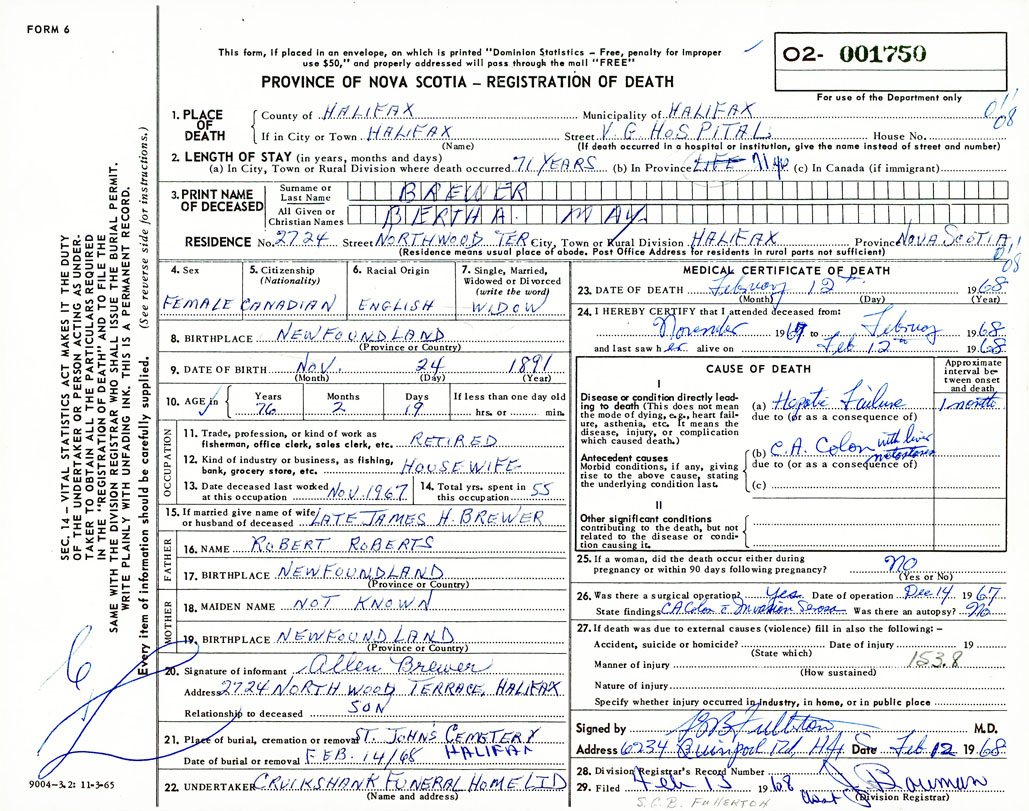 FORM 6
This form, if placed in an envelope, on which is printed "Dominion Statistics – Free, penalty for improper
use $50," and properly addressed will pass through the mail "FREE"
PROVINCE OF NOVA SCOTIA – REGISTRATION OF DEATH
02- 001750
For use of the Department only
011
08
1. PLACE OF DEATH
County of HALIFAX Municipality of HALIFAX
If in City or Town HALIFAX Street V G HOSPITAL House No.
(Name) (If death occurred in a hospital or institution, give the name instead of street and number)
2. LENGTH OF STAY (in years, months and days)
(a) In City, Town or Rural Division where death occurred 71 YEARS (b) In Province LIFE 71 (c) In Canada (if immigrant)
3. PRINT NAME OF DECEASED
Surname or Last Name BREWER
All Given or Christian Names BERTHA MAY
RESIDENCE No. 2724 Street NORTHWOOD TER City, Town or Rural Division HALIFAX Province NOVA SCOTIA
(Residence means usual place of abode. Post Office Address for residents in rural parts not sufficient)
011
08
4. Sex FEMALE
5. Citizenship (Nationality) CANADIAN
6. Racial Origin ENGLISH
7. Single, Married, Widowed or Divorced (write the word) WIDOW
8. BIRTHPLACE NEWFOUNDLAND
(Province or Country)
9. DATE OF BIRTH NOV. 24 1891
(Month) (Day) (Year)
10. AGE in Years 76 Months 2 Days 19 If less than one day old hrs. or min.
OCCUPATION
11. Trade, profession, or kind of work as
fisherman, office clerk, sales clerk, etc. RETIRED
12. Kind of industry or business, as fishing,
bank, grocery store, etc. HOUSEWIFE
13. Date deceased last worked
at this occupation NOV. 1967
14. Total yrs. spent in
this occupation 55
15. If married give name of wife
or husband of deceased LATE JAMES H. BREWER
FATHER
16. NAME ROBERT ROBERTS
17. BIRTHPLACE NEWFOUNDLAND
(Province or Country)
MOTHER
18. MAIDEN NAME NOT KNOWN
19. BIRTHPLACE NEWFOUNDLAND
(Province or Country)
20. Signature of informant Allen Brewer
Address 2724 NORTHWOOD TERRACE, HALIFAX
Relationship to deceased SON
21. Place of burial, cremation or removal ST. JOHN'S CEMETERY
HALIFAX
Date of burial or removal FEB. 14/68
22. UNDERTAKER CRUIKSHANK FUNERAL HOME LTD
(Name and address)
MEDICAL CERTIFICATE OF DEATH
23. DATE OF DEATH February 12th 1968
(Month) (Day) (Year)
24. I HEREBY CERTIFY that I attended deceased from:
November 1967 to February 1968
and last saw her alive on Feb 12th 1968
CAUSE OF DEATH
Approximate interval between onset and death
I
Disease or condition directly leading to death (This does not mean the mode of dying, e.g., heart failure, asthenia, etc. It means the disease, injury, or complication which caused death.)
(a) Hepatic Failure 1 month
due to (or as a consequence of)
Antecedent causes
Morbid conditions, if any, giving rise to the above cause, stating the underlying condition last.
(b) C.A. Colon with liver metastases
due to (or as a consequence of)
(c)
II
Other significant conditions
contributing to the death, but not related to the disease or condition causing it.
25. If a woman, did the death occur either during
pregnancy or within 90 days following pregnancy? No
(Yes or No)
26. Was there a surgical operation? Yes. Date of operation Dec 14 1967
State findings C.A. Colon c Invasion Serosa Was there an autopsy? No
27. If death was due to external causes (violence) fill in also the following: –
Accident, suicide or homicide? Date of injury 19
(State which)
Manner of injury 153.8
(How sustained)
Nature of injury
Specify whether injury occurred in industry, in home, or in public place
Signed by M.D.
Address 6234 Quinpool Rd, Hfx Date Feb. 12 1968
28. Division Registrar's Record Number
29. Filed Feb 13 1968 Bauman
(Division Registrar)
S.C.B. FULLERTON
SEC. 14 – VITAL STATISTICS ACT MAKES IT THE DUTY
OF THE UNDERTAKER OR PERSON ACTING AS UNDER.
TAKER TO OBTAIN ALL THE PARTICULARS REQUIRED
IN THE "REGISTRATION OF DEATH" AND TO FILE THE
SAME WITH THE DIVISION REGISTRAR WHO SHALL ISSUE THE BURIAL PERMIT.
WRITE PLAINLY WITH UNFADING INK. THIS IS A PERMANENT RECORD.
Every item of information should be carefully supplied. (See reverse side for instructions.)
9004–3.2: 11-3-65